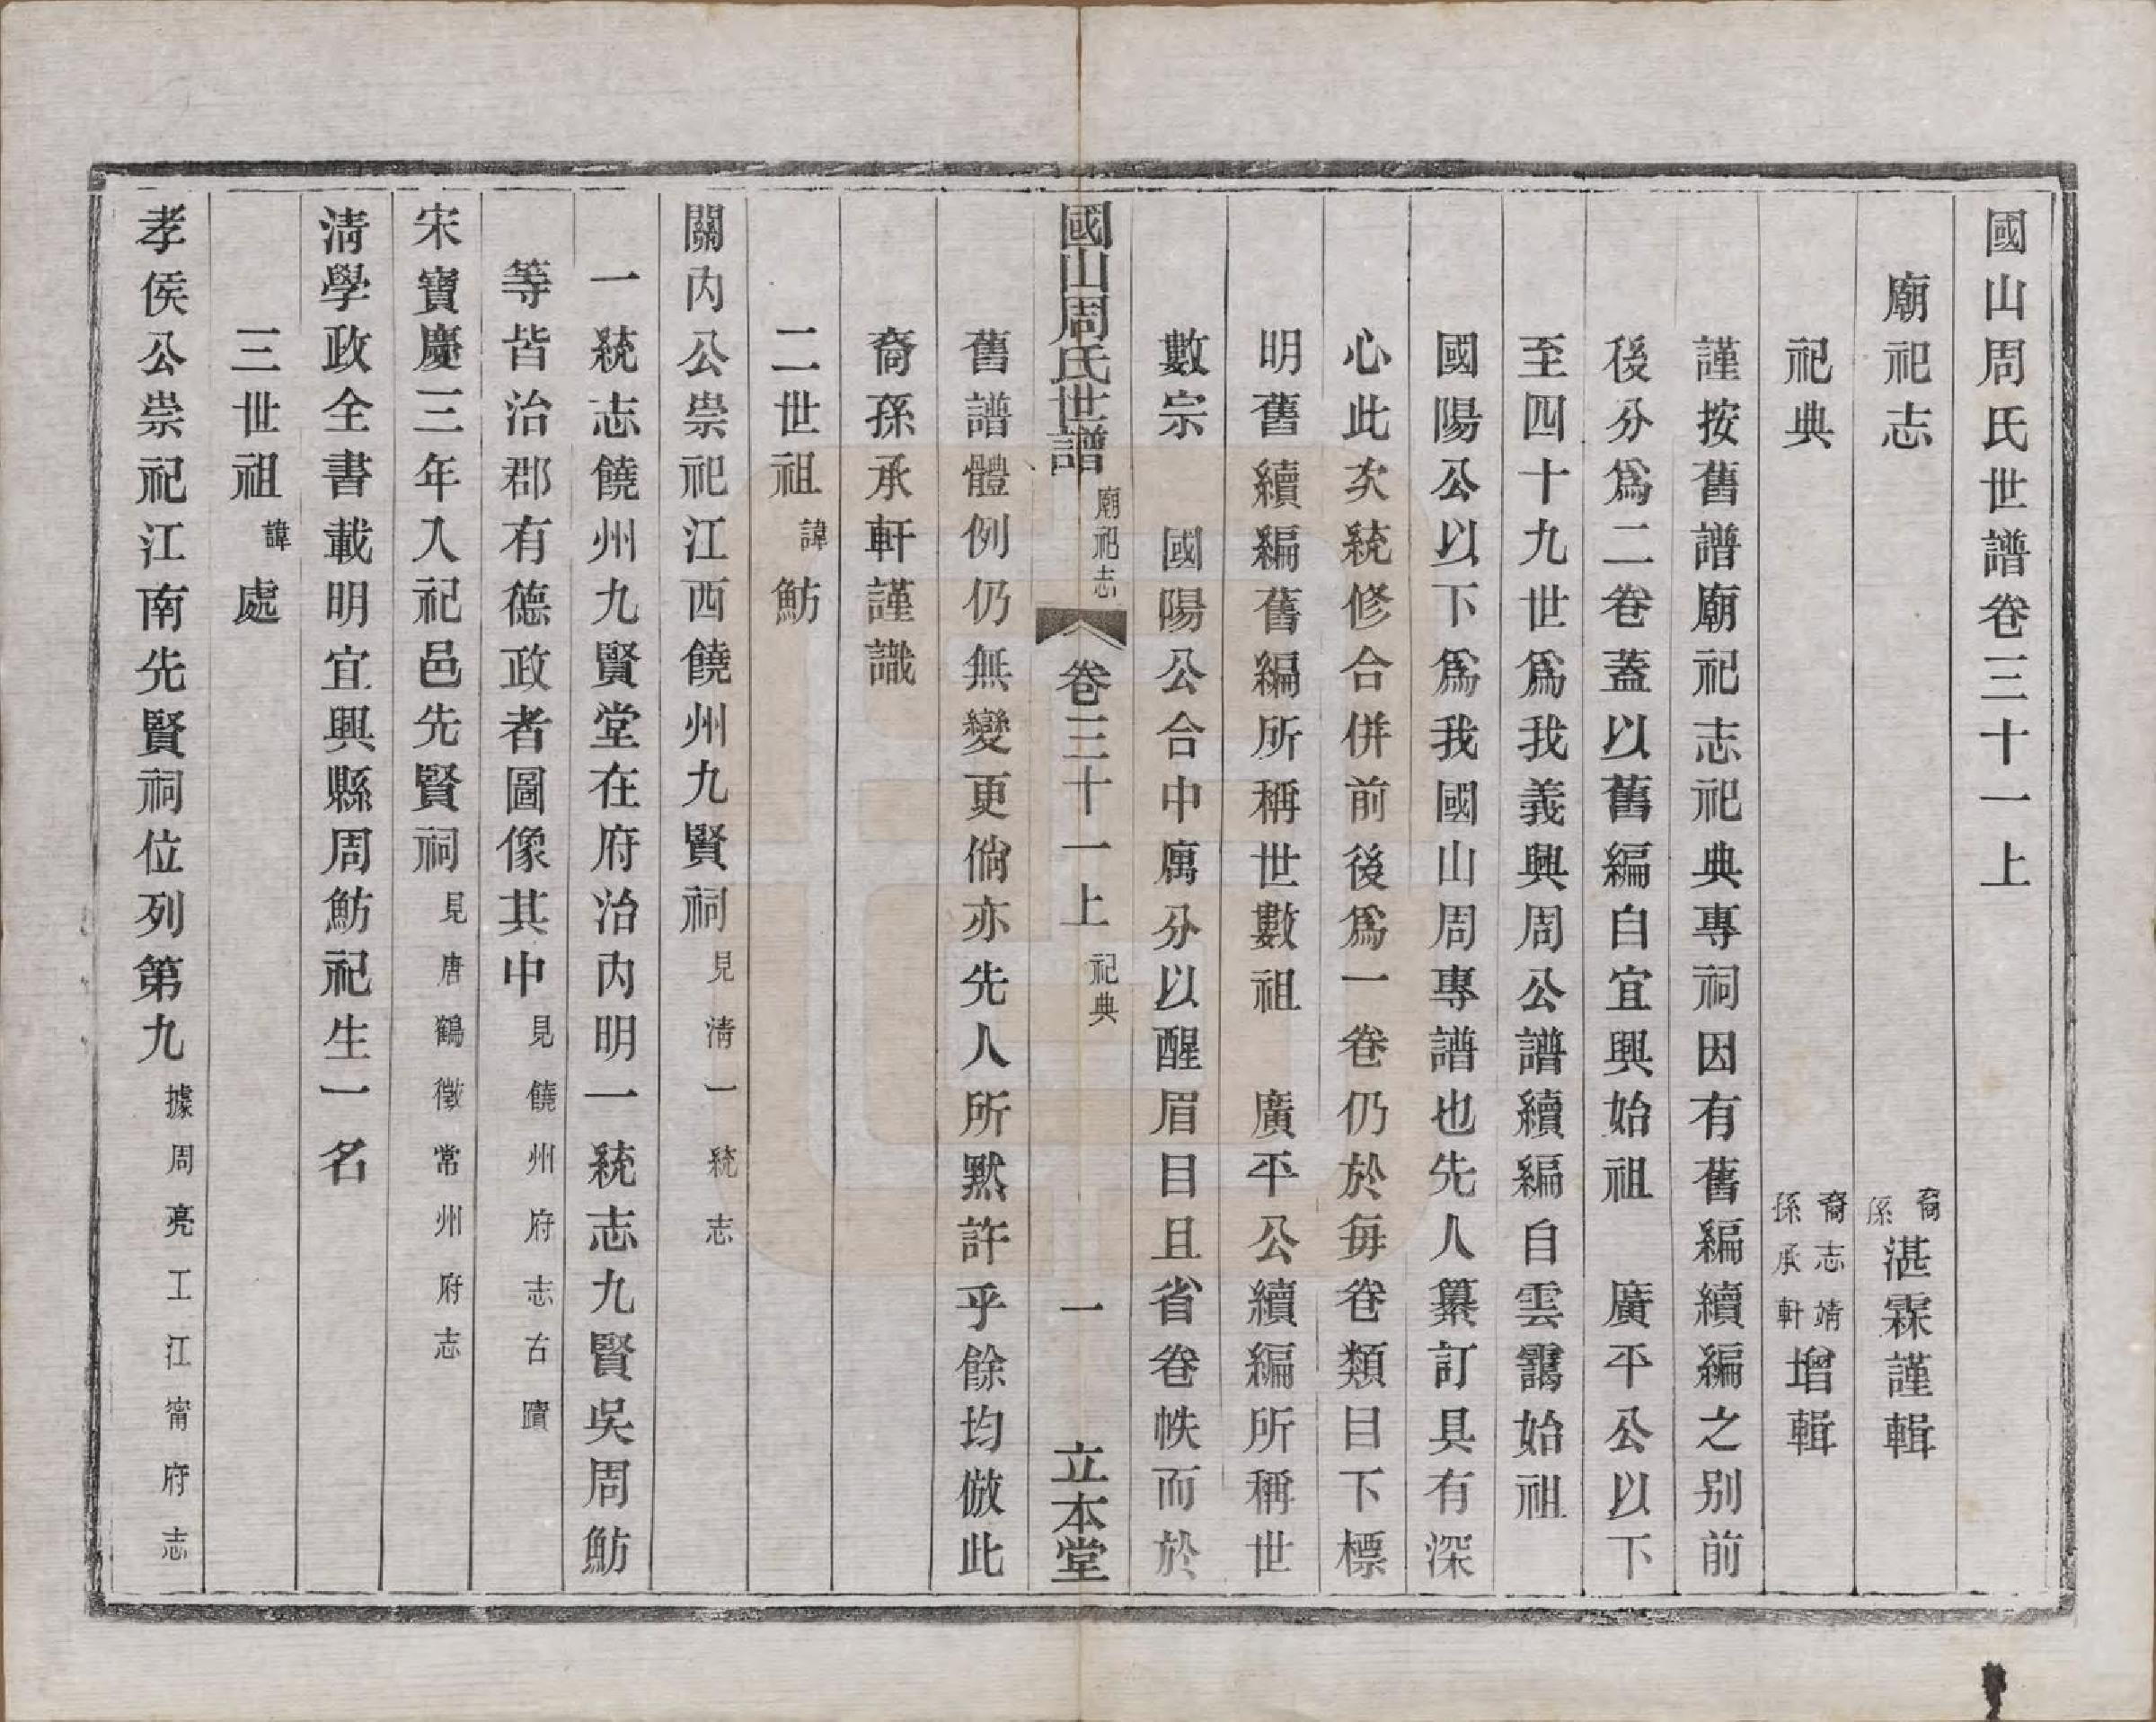 國山周氏世譜卷三十一上
廟祀志 裔孫湛霖謹輯
祀典 裔志靖孫承軒增輯
謹按舊譜廟祀志祀典專祠因有舊編續編之别前
後分爲二卷蓋以舊編自宜興始祖 廣平公以下
至四十九世爲我義興周公譜續編自雲靄始祖
國陽公以下爲我國山周專譜也先人纂訂具有深
心此次統修合併前後爲一卷仍於每卷類目下標
明舊續編舊編所稱世數祖 廣平公續編所稱世
數宗 國陽公合中厲分以醒眉目且省卷帙而於
國山周氏世譜 廟祀志 卷三十一上 祀典 一 立本堂
舊譜體例仍無變更倘亦先人所默許乎餘均倣此
裔孫承軒謹識
二世祖諱魴
關內公祟祀江西饒州九賢祠見淸一統志
一統志饒州九賢堂在府治內明一統志九賢吳周魴
等皆治郡有德政者圖像其中見饒州府志古蹟
宋寶慶三年入祀邑先賢祠見唐鶴徵常州府志
淸學政全書載明宜興縣周魴祀生一名
三世祖諱處
孝侯公祟祀江南先賢祠位列第九據周亮工江甯府志